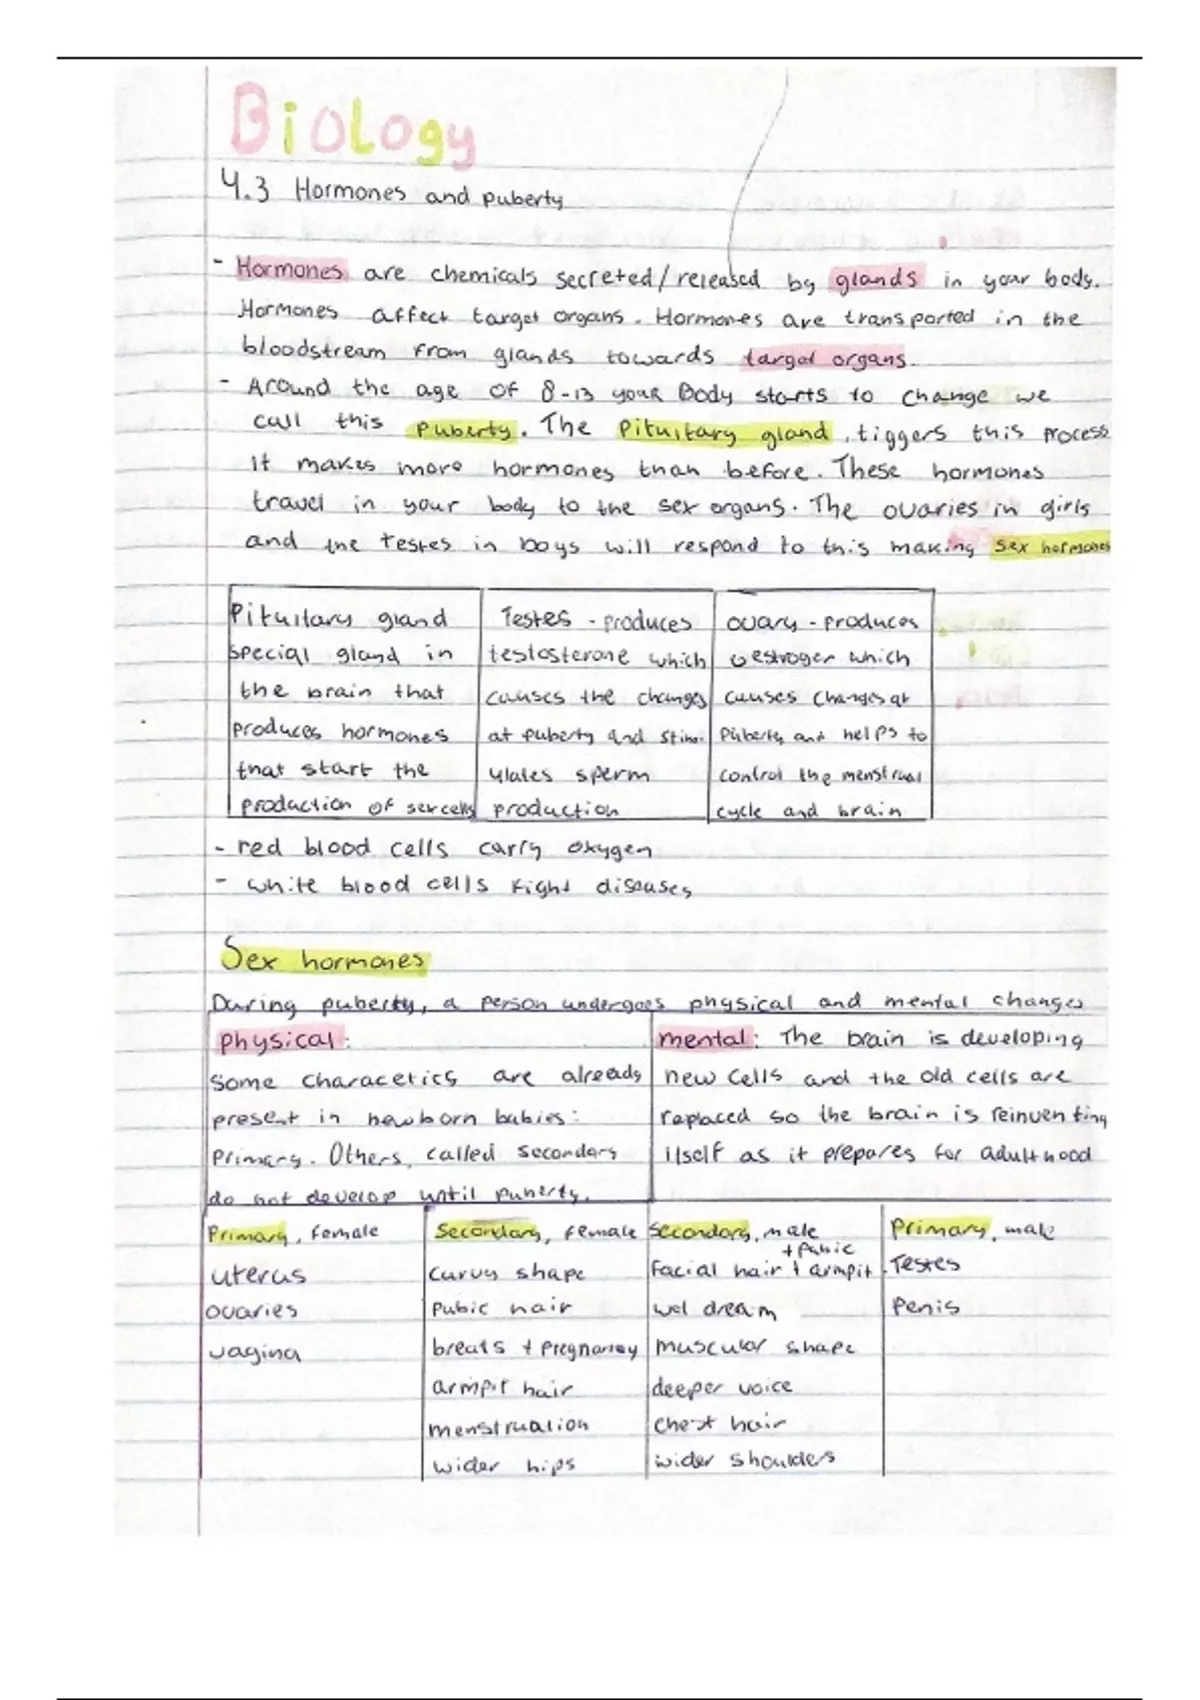 Biology
4.3 Hormones and puberty
- Hormones are chemicals secreted/released by glands in your body.
Hormones affect target organs. Hormones are transported in the
bloodstream from glands towards target organs.
- Around the age of 8-13 your Body starts to change we
call this puberty. The Pituitary gland, tiggers this process
it makes more hormones than before. These hormones
travel in your body to the sex organs. The ovaries in girls
and the testes in boys will respond to this making sex hormones
Pituitary gland
special gland in
the brain that
produces hormones
that start the
production of sex cells
Testes - produces
testosterone which
causes the changes
at puberty and stim-
ulates sperm
production
ovary - produces
oestrogen which
causes changes at
puberty and helps to
control the menstrual
cycle and brain
- red blood cells carry oxygen
- white blood cells fight diseases
Sex hormones
During puberty, a person undergoes physical and mental changes
physical:
some characetics are already
present in newborn babies:
primary. Others, called secondary
do not develop until puberty.
mental: The brain is developing
new cells and the old cells are
replaced so the brain is reinventing
itself as it prepares for adulthood
Primary, female
uterus
ovaries
vagina
Secondary, female
curvy shape
pubic hair
breats + pregnancy
armpit hair
menstruation
wider hips
secondary, male
+ pubic
facial hair + armpit
wet dream
muscular shape
deeper voice
chest hair
wider shoulders
Primary, male
Testes
Penis